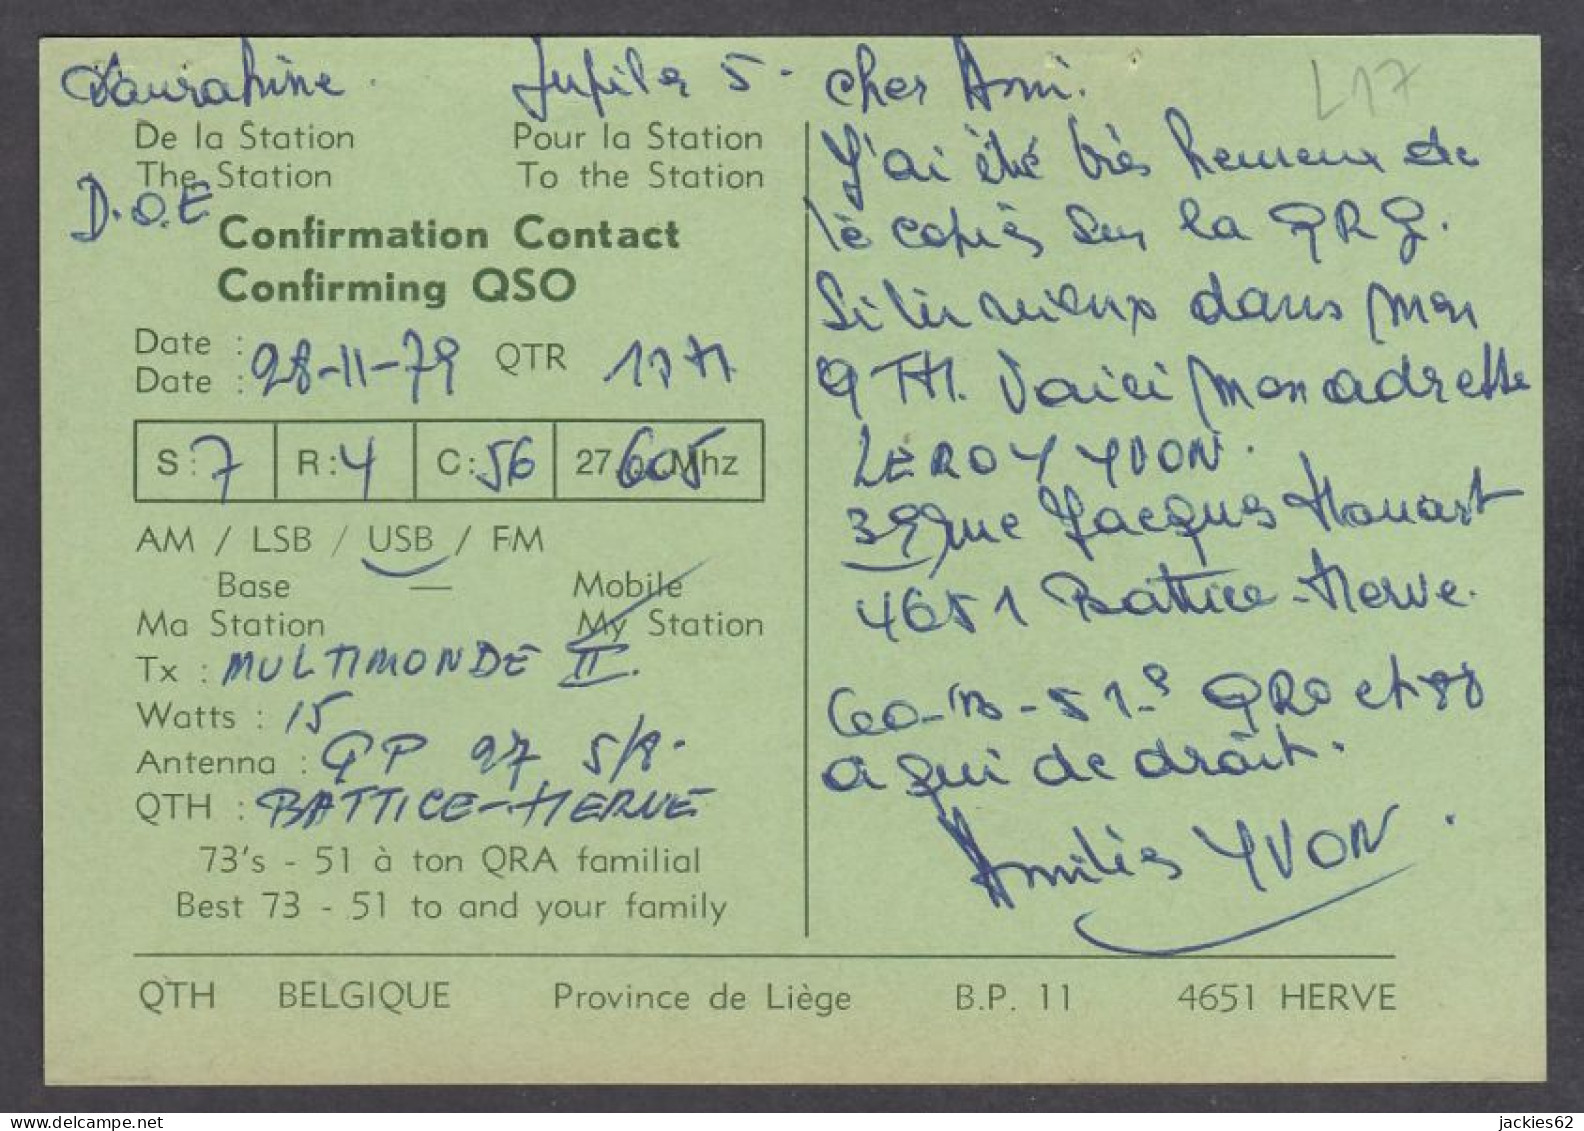 Jupiter 5.
De la Station Pour la Station
The Station To the Station
D.O.E
Confirmation Contact
Confirming QSO
Date :
Date : 28-11-79 QTR 17H
S : 7 R : 4 C : 56 27. 605 Mhz
AM / LSB / USB / FM
Base — Mobile
Ma Station My Station
Tx : MULTIMONDE II.
Watts : 15
Antenna : GP 27 5/8.
QTH : BATTICE-HERVE
73's - 51 à ton QRA familial
Best 73 - 51 to and your family
cher Ami. L17
J'ai été très heureux de
te copier sur la QRG.
dans mon
QTH. Voici mon adresse
LEROY YVON.
39 rue Jacques Honart
4651 Battice-Herve.
51 QRO et 88
a qui de droit.
Amitiés YVON.
QTH BELGIQUE Province de Liège B.P. 11 4651 HERVE
www.delcampe.net jackies62